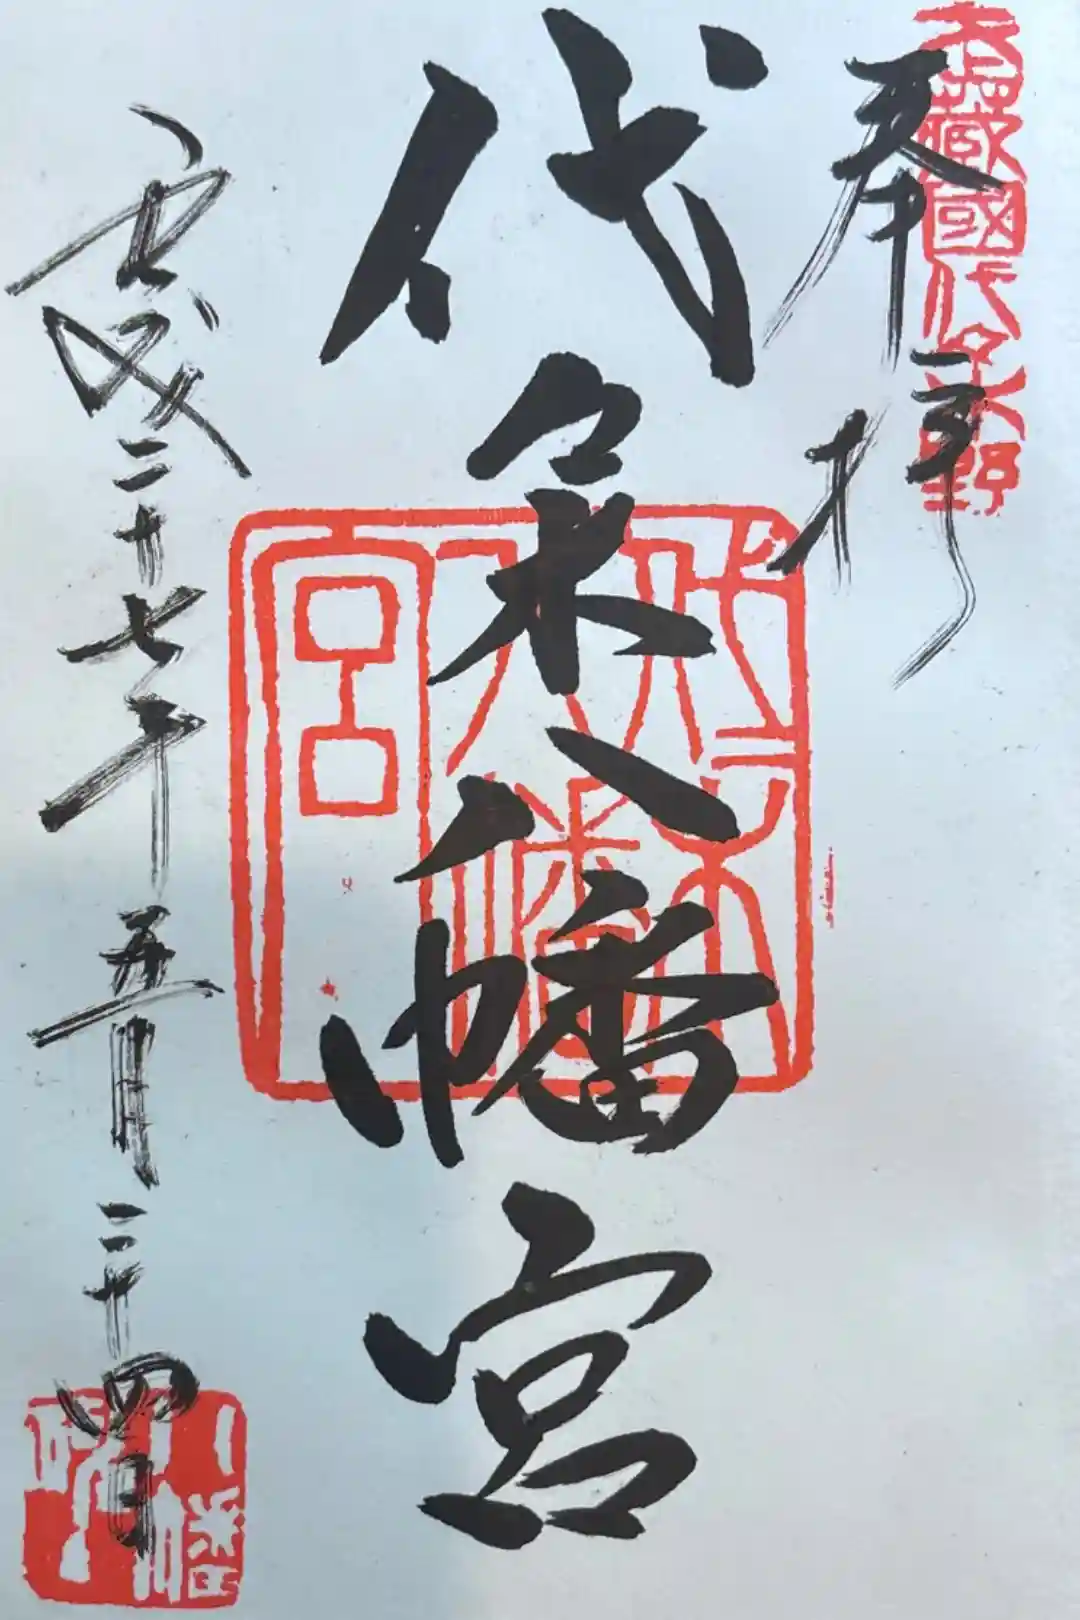 武藏國代々木野
奉拝
代々木八幡宮
代々木八幡宮
平成二十七年五月二十四日